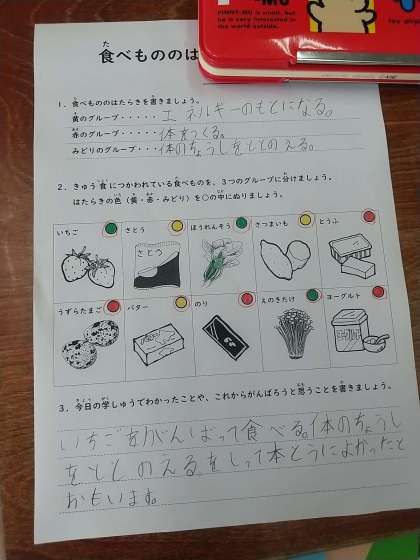 PINNY-MU is small, but
he is very interested in
the world outside.
食べもののは
1．食べもののはたらきを書きましょう。
黄のグループ・・・・・エネルギーのもとになる。
赤のグループ・・・・・体をつくる。
みどりのグループ・・・体のちょうしをととのえる。
2．きゅう食につかわれている食べものを、3つのグループに分けましょう。
はたらきの色（黄・赤・みどり）を○の中にぬりましょう。
いちご さとう ほうれんそう さつまいも とうふ
さとう
うずらたまご バター のり えのきたけ ヨーグルト
3．今日の学しゅうでわかったことや、これからがんばろうと思うことを書きましょう。
いちごをがんばって食べる。体のちょうし
をととのえるをしって本とうによかったと
おもいます。